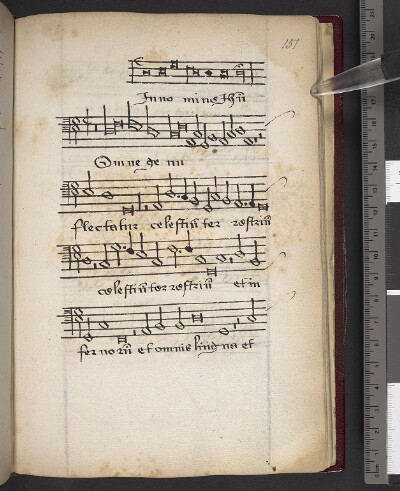 151
In no mine Jhũ
Omne ge nu
flectatur celestiũ ter restriũ
celestiũ ter restriũ et in
fer no rũ et omnis ling na et